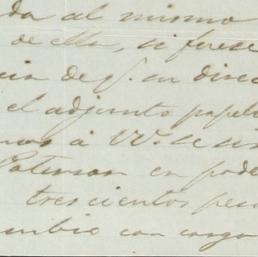 da al mismo
de ella, si fuese
cia de S. en direc
el adjunto papel
mos á VV. se si
Paterson en pode
trescientos pes
cambio con cargo